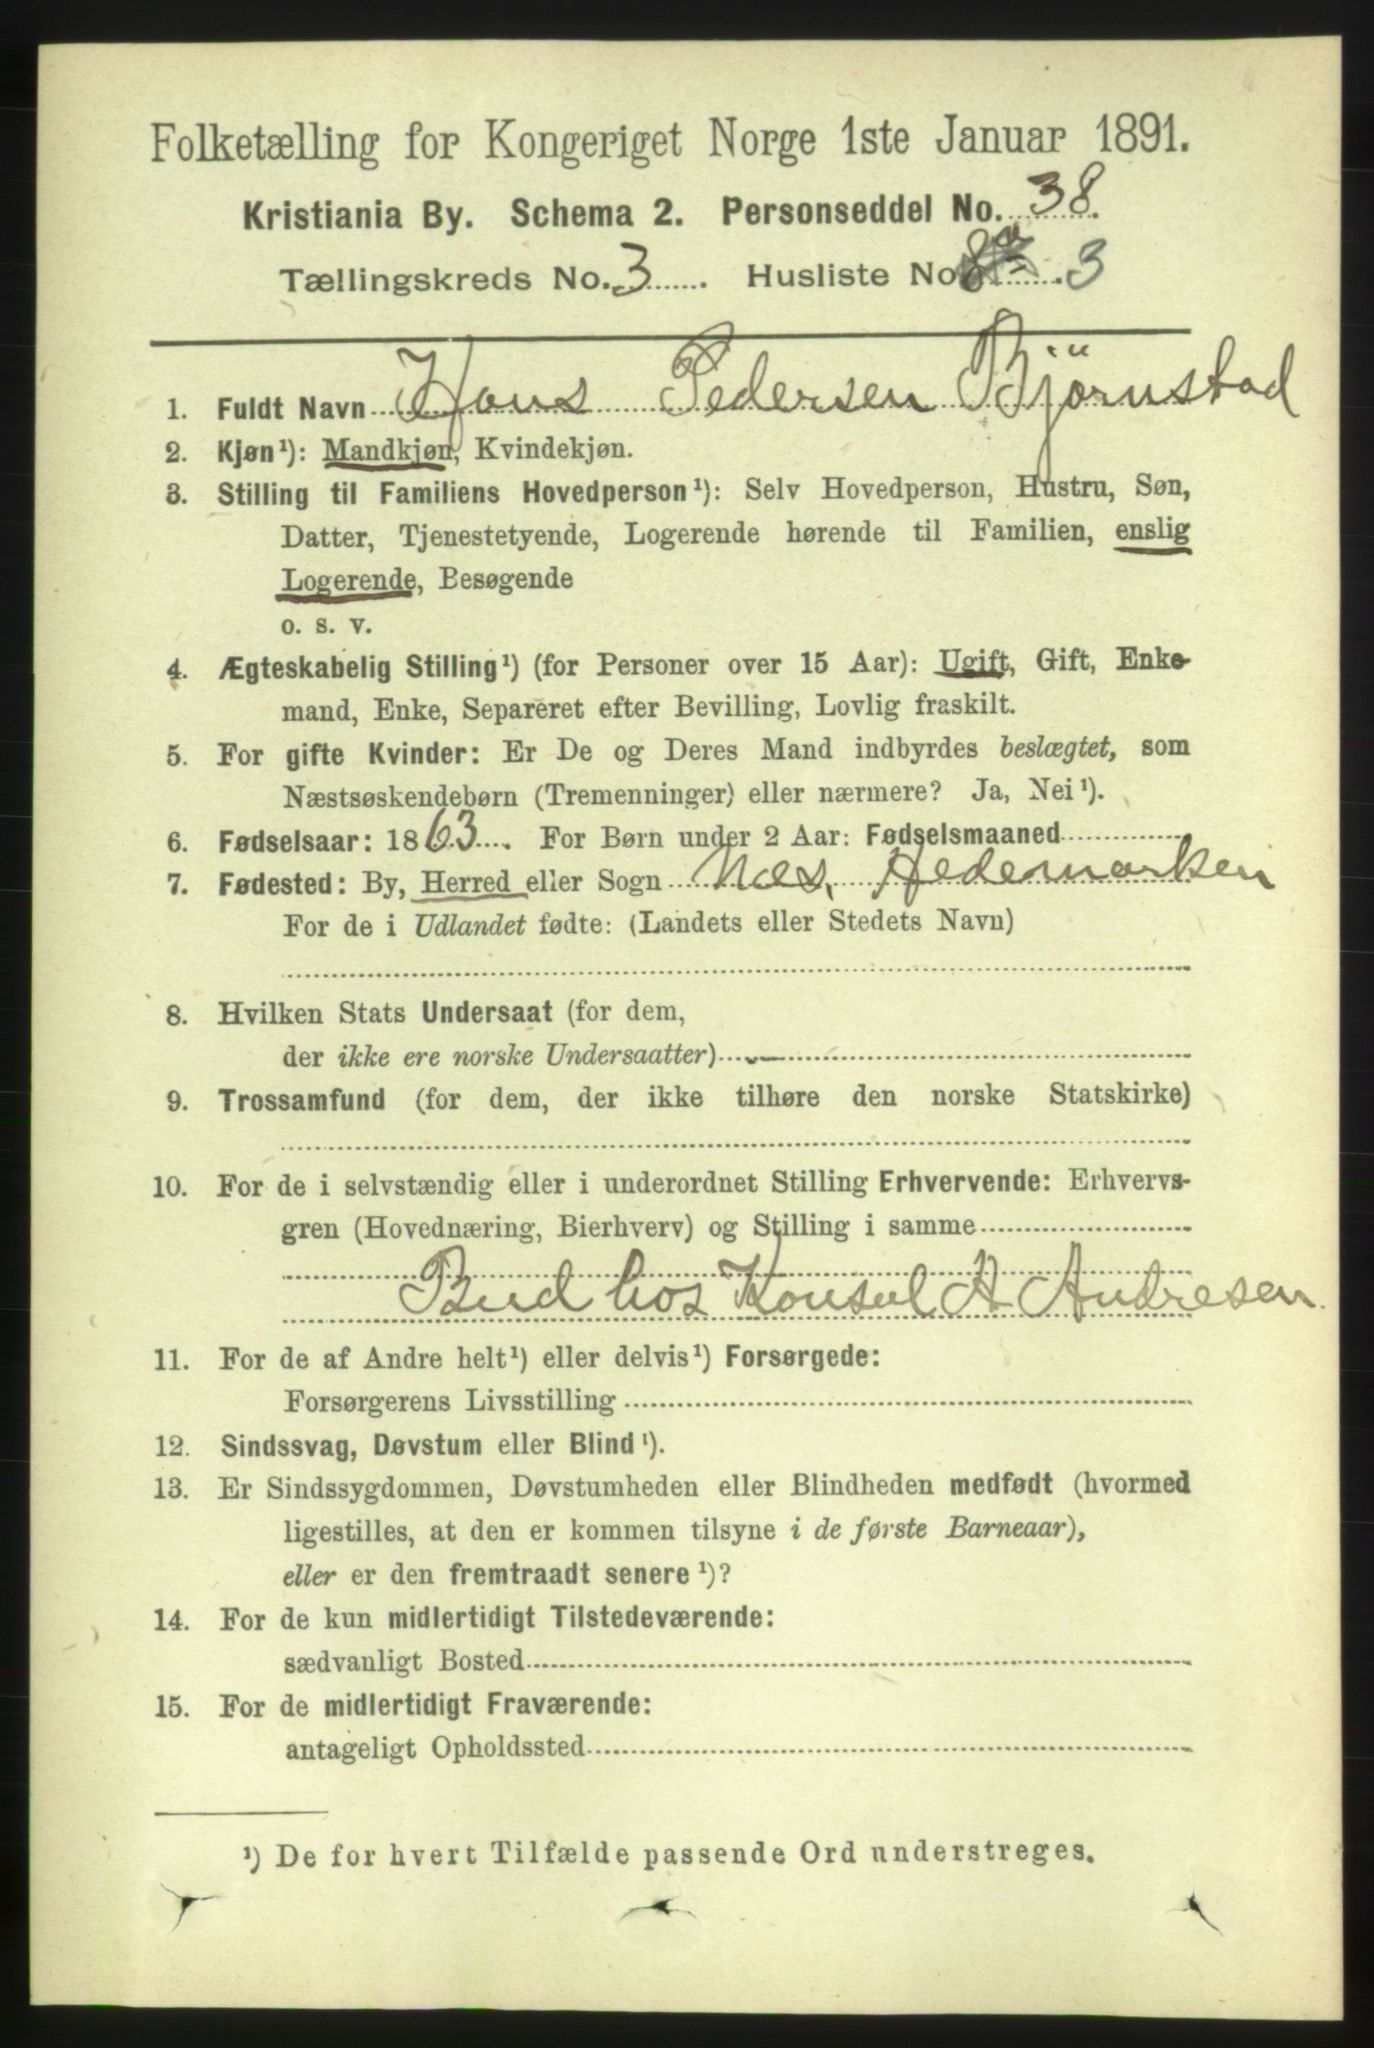 Folketælling for Kongeriget Norge 1ste Januar 1891.
Kristiania By. Schema 2. Personseddel No. 38.
Tællingskreds No. 3. Husliste No. 8a 3
1. Fuldt Navn Hans Pedersen Björnstad
2. Kjøn¹): Mandkjøn, Kvindekjøn.
3. Stilling til Familiens Hovedperson¹): Selv Hovedperson, Hustru, Søn,
Datter, Tjenestetyende, Logerende hørende til Familien, enslig
Logerende, Besøgende
o. s. v.
4. Ægteskabelig Stilling¹) (for Personer over 15 Aar): Ugift, Gift, Enke-
mand, Enke, Separeret efter Bevilling, Lovlig fraskilt.
5. For gifte Kvinder: Er De og Deres Mand indbyrdes beslægtet, som
Næstsøskendebørn (Tremenninger) eller nærmere? Ja, Nei¹).
6. Fødselsaar: 1863. For Børn under 2 Aar: Fødselsmaaned
7. Fødested: By, Herred eller Sogn Næs, Hedemarken
For de i Udlandet fødte: (Landets eller Stedets Navn)
8. Hvilken Stats Undersaat (for dem,
der ikke ere norske Undersaatter)
9. Trossamfund (for dem, der ikke tilhøre den norske Statskirke)
10. For de i selvstændig eller i underordnet Stilling Erhvervende: Erhvervs-
gren (Hovednæring, Bierhverv) og Stilling i samme
Bud hos Konsul A Andresen
11. For de af Andre helt¹) eller delvis¹) Forsørgede:
Forsørgerens Livsstilling
12. Sindssvag, Døvstum eller Blind¹).
13. Er Sindssygdommen, Døvstumheden eller Blindheden medfødt (hvormed
ligestilles, at den er kommen tilsyne i de første Barneaar),
eller er den fremtraadt senere¹)?
14. For de kun midlertidigt Tilstedeværende:
sædvanligt Bosted
15. For de midlertidigt Fraværende:
antageligt Opholdssted
¹) De for hvert Tilfælde passende Ord understreges.